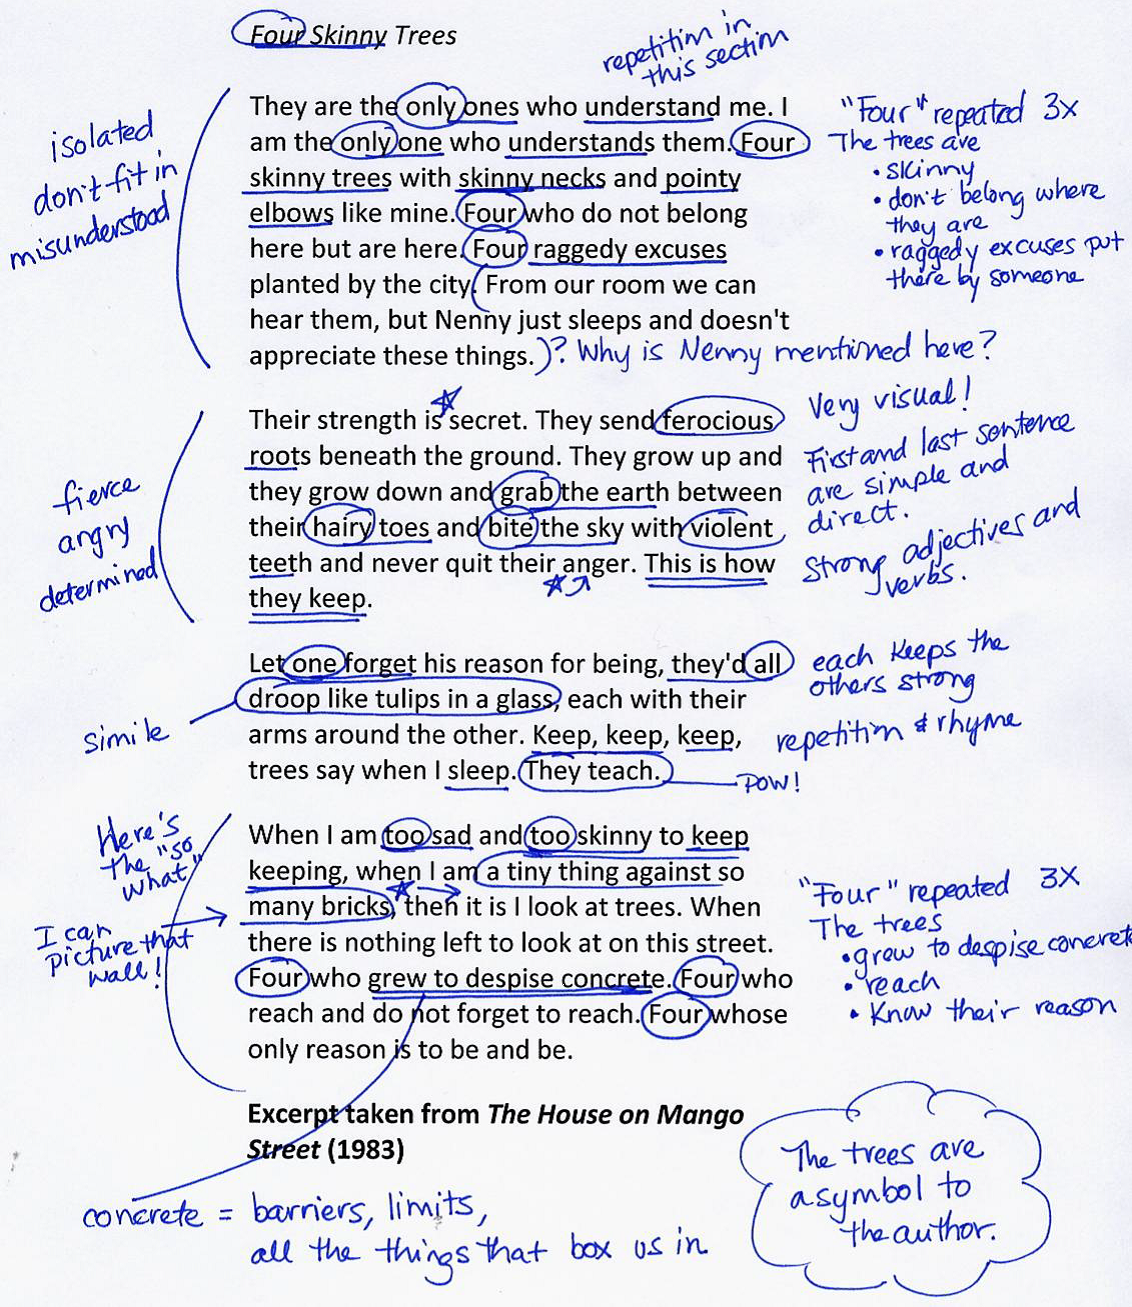 Four Skinny Trees
repetition in
this section
They are the only ones who understand me. I
am the only one who understands them. Four
skinny trees with skinny necks and pointy
elbows like mine. Four who do not belong
here but are here. Four raggedy excuses
planted by the city. From our room we can
hear them, but Nenny just sleeps and doesn't
appreciate these things.
isolated
don't fit in
misunderstood
"Four" repeated 3x
The trees are
• skinny
• don't belong where
they are
• raggedy excuses put
there by someone
)? Why is Nenny mentioned here?
Their strength is secret. They send ferocious
roots beneath the ground. They grow up and
they grow down and grab the earth between
their hairy toes and bite the sky with violent
teeth and never quit their anger. This is how
they keep.
fierce
angry
determined
Very visual!
First and last sentence
are simple and
direct.
Strong adjectives and
verbs.
Let one forget his reason for being, they'd all
droop like tulips in a glass, each with their
arms around the other. Keep, keep, keep,
trees say when I sleep. They teach.
simile
each keeps the
others strong
repetition & rhyme
POW!
When I am too sad and too skinny to keep
keeping, when I am a tiny thing against so
many bricks, then it is I look at trees. When
there is nothing left to look at on this street.
Four who grew to despise concrete. Four who
reach and do not forget to reach. Four whose
only reason is to be and be.
Here's
the "so
what"
I can
picture that
wall!
"Four" repeated 3X
The trees
• grew to despise concrete
• reach
• Know their reason
Excerpt taken from The House on Mango
Street (1983)
concrete = barriers, limits,
all the things that box us in
The trees are
a symbol to
the author.